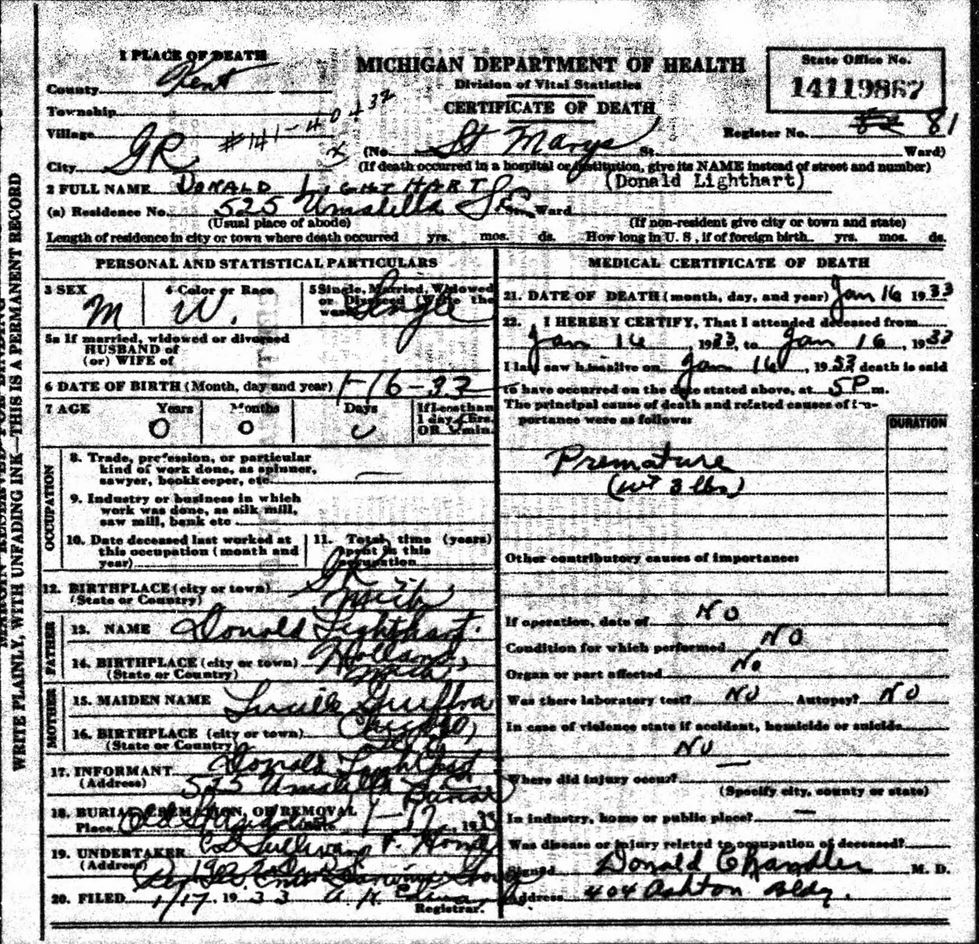 1 PLACE OF DEATH
County Kent
MICHIGAN DEPARTMENT OF HEALTH
Division of Vital Statistics
CERTIFICATE OF DEATH
State Office No.
14119867
Township
Village
#141-404
Register No. 81
City GR (No. St Marys St. Ward)
(If death occurred in a hospital or institution, give its NAME instead of street and number)
2 FULL NAME DONALD LIGHTHART (Donald Lighthart)
(a) Residence No. 525 Umatilla St., Ward
(Usual place of abode) (If non-resident give city or town and state)
Length of residence in city or town where death occurred yrs. mos. ds. How long in U. S., if of foreign birth. yrs. mos. ds.
PERSONAL AND STATISTICAL PARTICULARS
3 SEX 4 Color or Race 5 Single, Married, Widowed or Divorced (Write the word)
M W. Single
5a If married, widowed or divorced
HUSBAND of
(or) WIFE of
6 DATE OF BIRTH (Month, day and year) 1-16-33
7 AGE Years Months Days If less than 1 day hrs. OR min.
0 0
OCCUPATION
8. Trade, profession, or particular
kind of work done, as spinner,
sawyer, bookkeeper, etc —
9. Industry or business in which
work was done, as silk mill,
saw mill, bank etc
10. Date deceased last worked at
this occupation (month and
year)
11. Total time (years)
spent in this
occupation
12. BIRTHPLACE (city or town) GR
(State or Country) Mich
FATHER
13. NAME Donald Lighthart.
14. BIRTHPLACE (city or town) Holland,
(State or Country) Mich
MOTHER
15. MAIDEN NAME Lucille
16. BIRTHPLACE (city or town) Chicago,
(State or Country)
17. INFORMANT Donald Lighthart
(Address) 525 Umatilla
18. BURIAL, CREMATION, OR REMOVAL Burial
Place Date 1-17, 1933
19. UNDERTAKER Sullivan
(Address)
20. FILED 1/17 1933
Registrar.
MEDICAL CERTIFICATE OF DEATH
21. DATE OF DEATH (month, day, and year) Jan 16 1933
22. I HEREBY CERTIFY, That I attended deceased from
Jan 16, 1933, to Jan 16, 1933
I last saw him alive on Jan 16, 1933 death is said
to have occurred on the date stated above, at 5P m.
The principal cause of death and related causes of im-
portance were as follows:
DURATION
Premature
(wt 3 lbs)
Other contributory causes of importance:
If operation, date of NO
Condition for which performed NO
Organ or part affected No
Was there laboratory test? NO Autopsy? NO
In case of violence state if accident, homicide or suicide
NO
Where did injury occur? —
(Specify city, county or state)
In industry, home or public place? —
Was disease or injury related to occupation of deceased?
Signed Donald Chandler M. D.
Address 404 Ashton Bldg.
WRITE PLAINLY, WITH UNFADING INK—THIS IS A PERMANENT RECORD